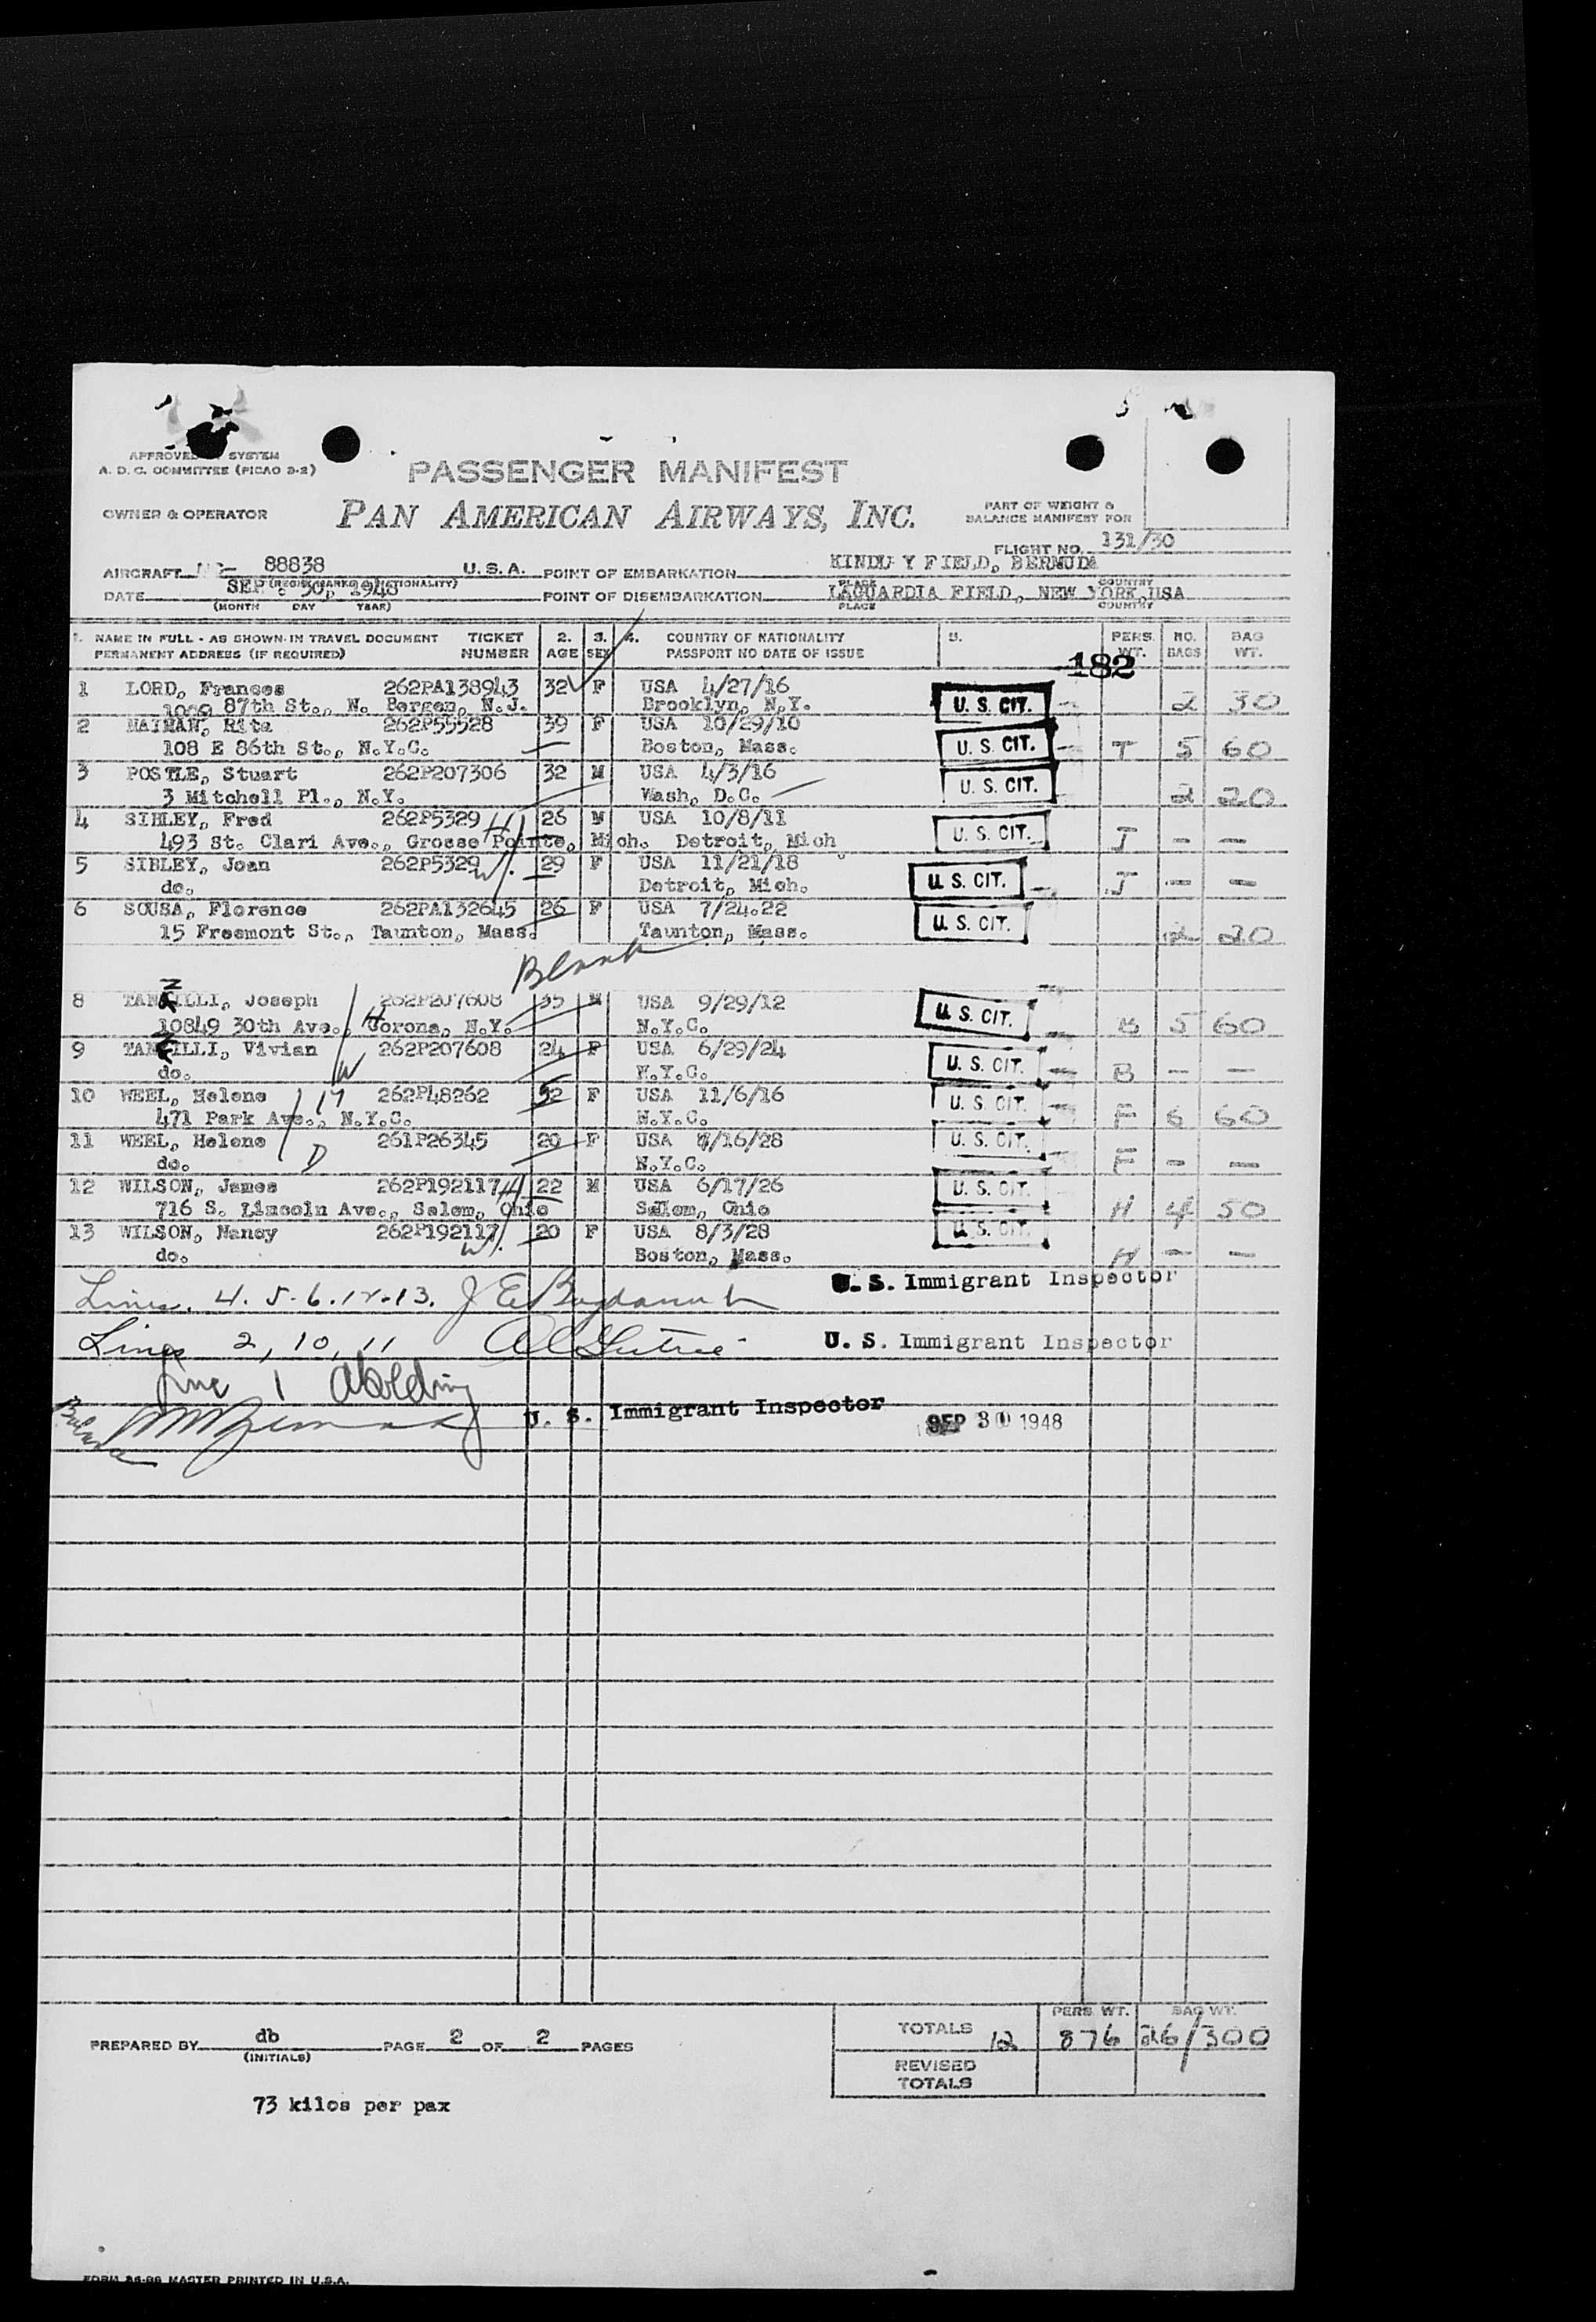 APPROVED SYSTEM
A. D. C. COMMITTEE (PICAO 3-2)
PASSENGER MANIFEST
OWNER & OPERATOR
PAN AMERICAN AIRWAYS, INC.
PART OF WEIGHT &
BALANCE MANIFEST FOR
FLIGHT NO. 131/30
AIRCRAFT 88838 U.S.A. POINT OF EMBARKATION KINDLEY FIELD, BERMUDA
PLACE COUNTRY
DATE SEP 30, 1948 POINT OF DISEMBARKATION LAGUARDIA FIELD, NEW YORK, USA
(MONTH DAY YEAR) PLACE COUNTRY
1. NAME IN FULL - AS SHOWN IN TRAVEL DOCUMENT TICKET 2. 3. 4. COUNTRY OF NATIONALITY 5. PERS. NO. BAG
PERMANENT ADDRESS (IF REQUIRED) NUMBER AGE SEX PASSPORT NO DATE OF ISSUE WT. BAGS WT.
182
1 LORD, Frances 262PA138943 32 F USA 4/27/16
1009 87th St., N. Bergen, N.J. Brooklyn, N.Y. U. S. CIT. 2 30
2 NAIMAN, Rita 262P55528 39 F USA 10/29/10
108 E 86th St., N.Y.C. Boston, Mass. U. S. CIT. T 5 60
3 POSTLE, Stuart 262P207306 32 M USA 4/3/16
3 Mitchell Pl., N.Y. Wash, D.C. U. S. CIT. 2 20
4 SIBLEY, Fred 262P5329 H 26 M USA 10/8/11
493 St. Clari Ave., Grosse Pointe, Mich. Detroit, Mich U. S. CIT. J - -
5 SIBLEY, Joan 262P5329 W 29 F USA 11/21/18
do. Detroit, Mich. U. S. CIT. J - -
6 SOUSA, Florence 262PA132645 26 F USA 7/24.22
15 Freemont St., Taunton, Mass. Taunton, Mass. U. S. CIT. 2 20
Blank
8 TANZILLI, Joseph 262P207608 35 M USA 9/29/12
10849 30th Ave., Corona, N.Y. H N.Y.C. U. S. CIT. B 5 60
9 TANZILLI, Vivian 262P207608 24 F USA 6/29/24
do. W N.Y.C. U. S. CIT. B - -
10 WEEL, Helene 262P48262 52 F USA 11/6/16
471 Park Ave., N.Y.C. M N.Y.C. U. S. CIT. F 6 60
11 WEEL, Helene 261P26345 20 F USA /16/28
do. D N.Y.C. U. S. CIT. F - -
12 WILSON, James 262P192117 H 22 M USA 6/17/26
716 S. Lincoln Ave., Salem, Ohio Salem, Ohio U. S. CIT. H 4 50
13 WILSON, Nancy 262P192117 W 20 F USA 8/3/28
do. Boston, Mass. U. S. CIT. H - -
Lines. 4. 5. 6. 12. 13. U. S. Immigrant Inspector
Lines 2, 10, 11 U. S. Immigrant Inspector
Line 1
Balance U. S. Immigrant Inspector SEP 30 1948
TOTALS 12 PERS. WT. 876 BAG WT. 26/300
REVISED
TOTALS
PREPARED BY db PAGE 2 OF 2 PAGES
(INITIALS)
73 kilos per pax
FORM 36-98 MASTER PRINTED IN U.S.A.